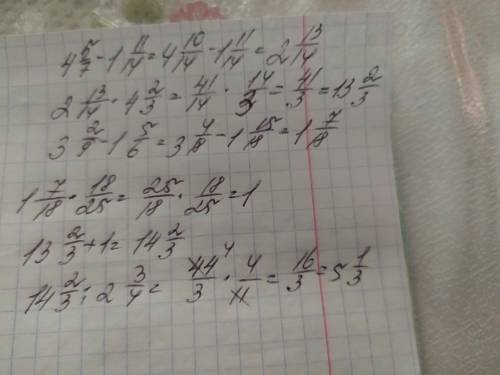 4 5/7 - 1 11/14 = 4 10/14 - 1 11/14 = 2 13/14
2 13/14 · 4 2/3 = 41/14 · 14/3 = 41/3 = 13 2/3
3 2/9 - 1 5/6 = 3 4/18 - 1 15/18 = 1 7/18
1 7/18 · 18/25 = 25/18 · 18/25 = 1
13 2/3 + 1 = 14 2/3
14 2/3 : 2 3/4 = 44/3 4 · 4/11 = 16/3 = 5 1/3